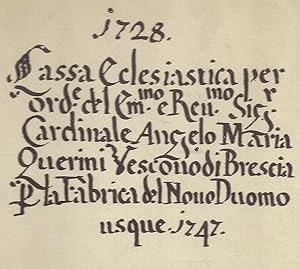 1728.
Cassa Eclesiastica per
Ord.e del Em.mo e Reu.mo Sig.r
Cardinale Angelo Maria
Querini Vescouo di Brescia
P la Fabrica del Nouo Duomo
usque. 1747.